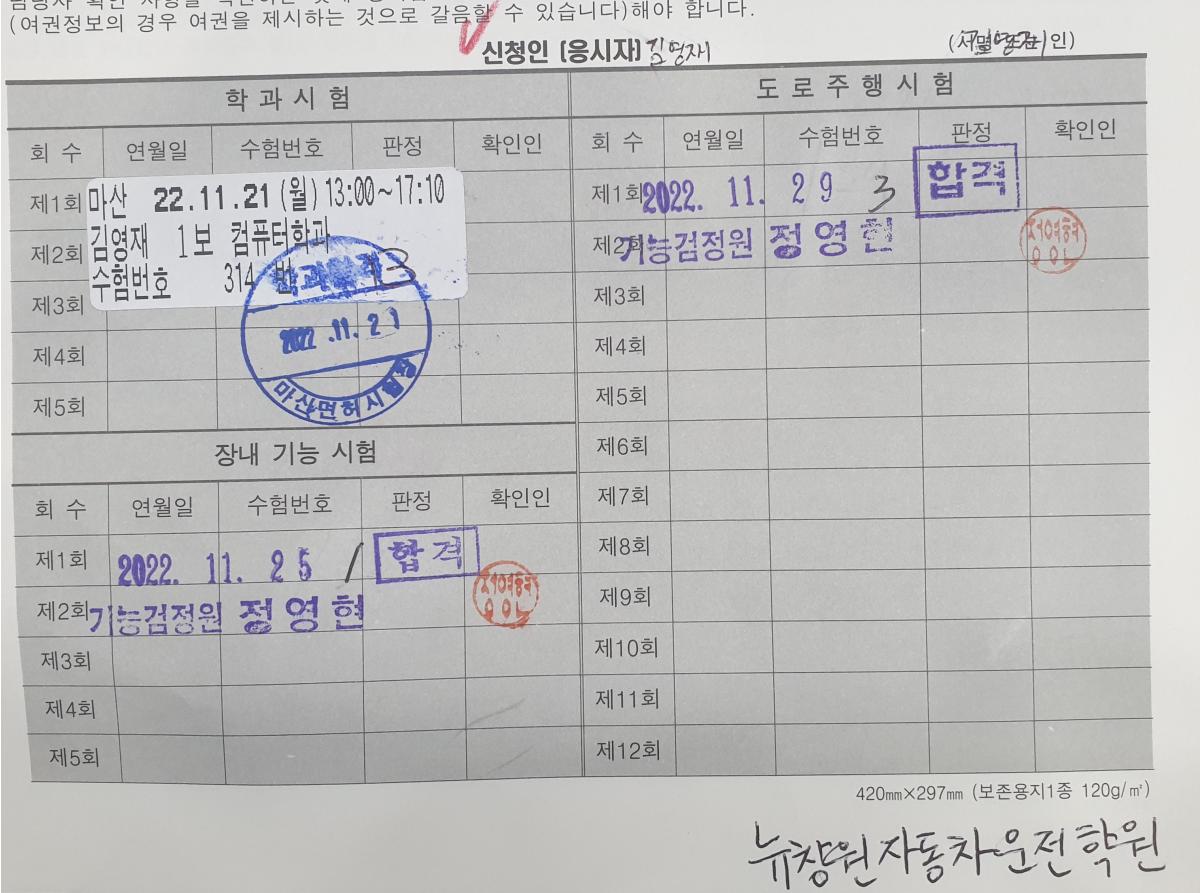 (여권정보의 경우 여권을 제시하는 것으로 갈음할 수 있습니다)해야 합니다.
신청인 (응시자) 김영재 인)
학 과 시 험
회 수 연월일 수험번호 판정 확인인
제1회 마산 22.11.21 (월) 13:00~17:10
제2회 김영재 1보 컴퓨터학과
수험번호 314 번
제3회
2022 .11. 21
제4회
마산면허시험장
제5회
장내 기능 시험
회 수 연월일 수험번호 판정 확인인
제1회 2022. 11. 25 1 합격
제2회 기능검정원 정영현
제3회
제4회
제5회
도 로 주 행 시 험
회 수 연월일 수험번호 판정 확인인
제1회 2022. 11. 29 3 합격
제2회 기능검정원 정영현
제3회
제4회
제5회
제6회
제7회
제8회
제9회
제10회
제11회
제12회
420㎜×297㎜ (보존용지1종 120g/㎡)
뉴창원자동차운전학원